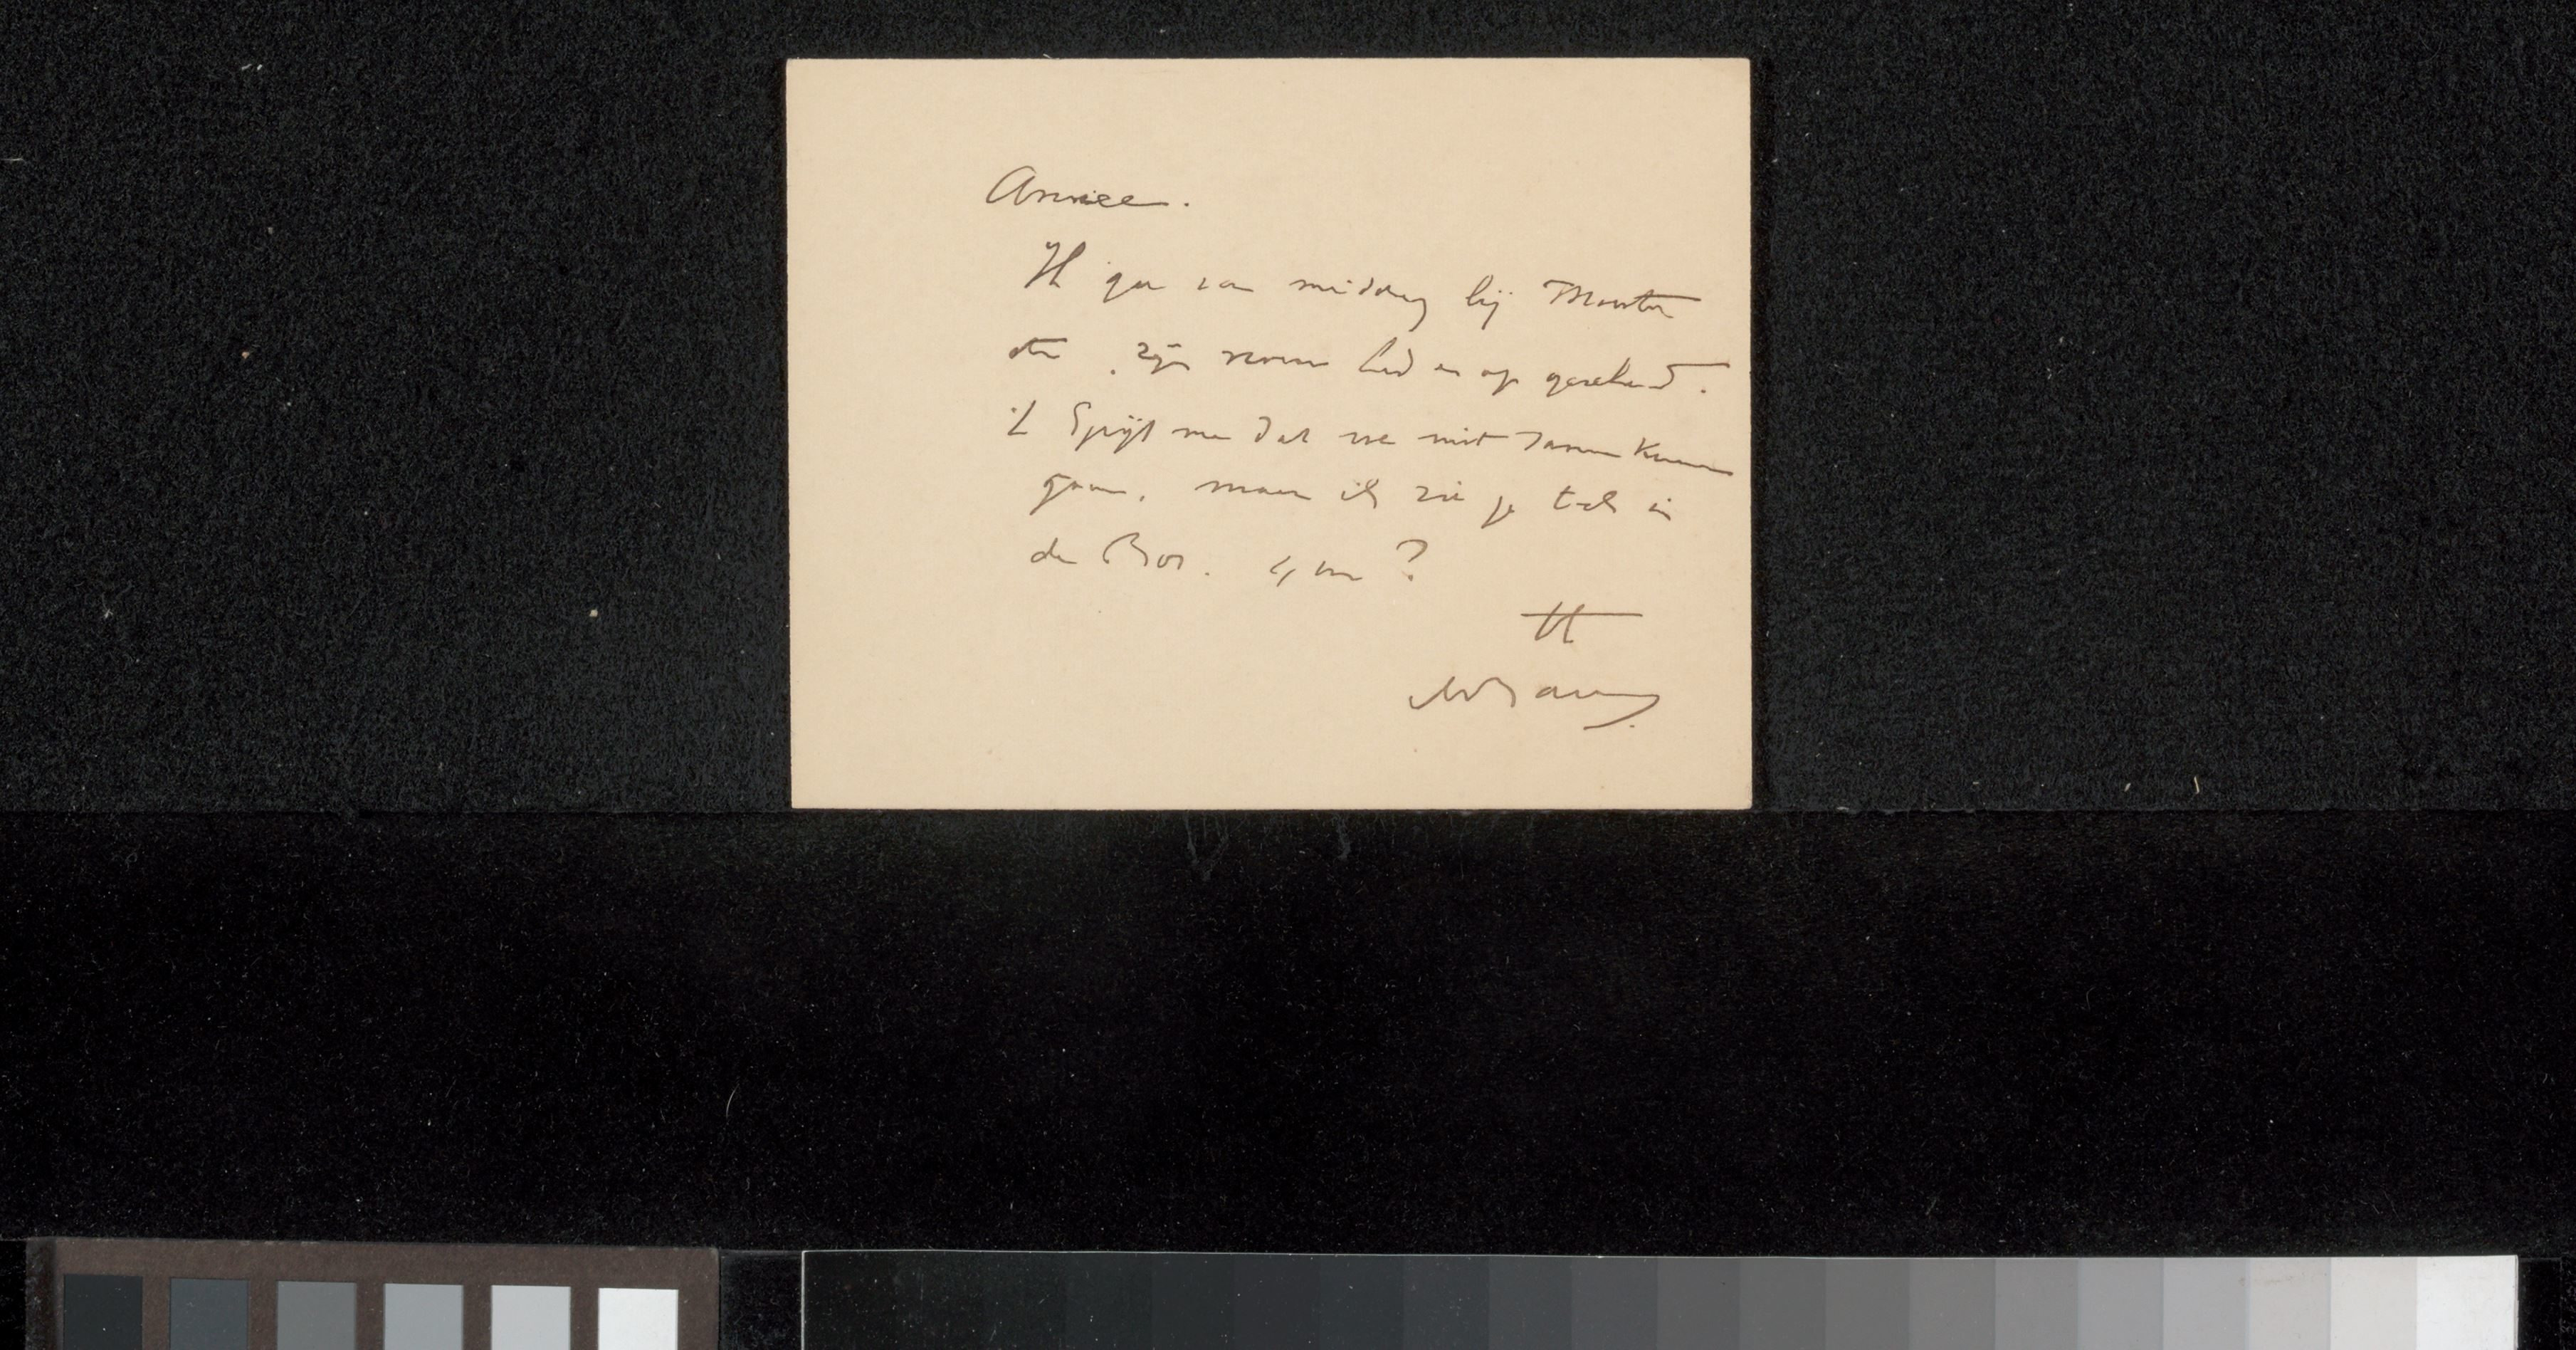 Amice.
Ik ga van middag bij
eten, zijn vrouw had er op gerekend.
't Spijt me dat we niet samen kunnen
gaan, maar ik zie je toch in
de Bos. ?
tt